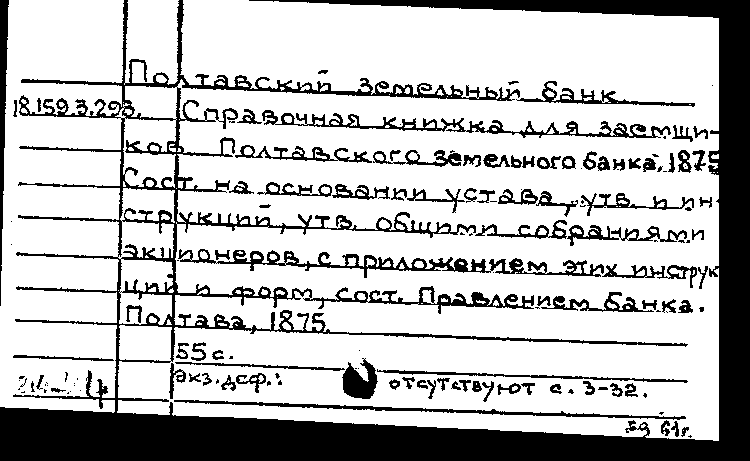 Полтавский земельный банк.
18.159.3.293. Справочная книжка для заемщи-
ков Полтавского земельного банка. 1875
Сост. на основании устава, утв. и ин-
струкций, утв. общими собраниями
акционеров, с приложением этих инструк
ций и форм, сост. Правлением банка.
Полтава, 1875.
55 с.
экз. деф.: отсутствуют с. 3-32.
61г.